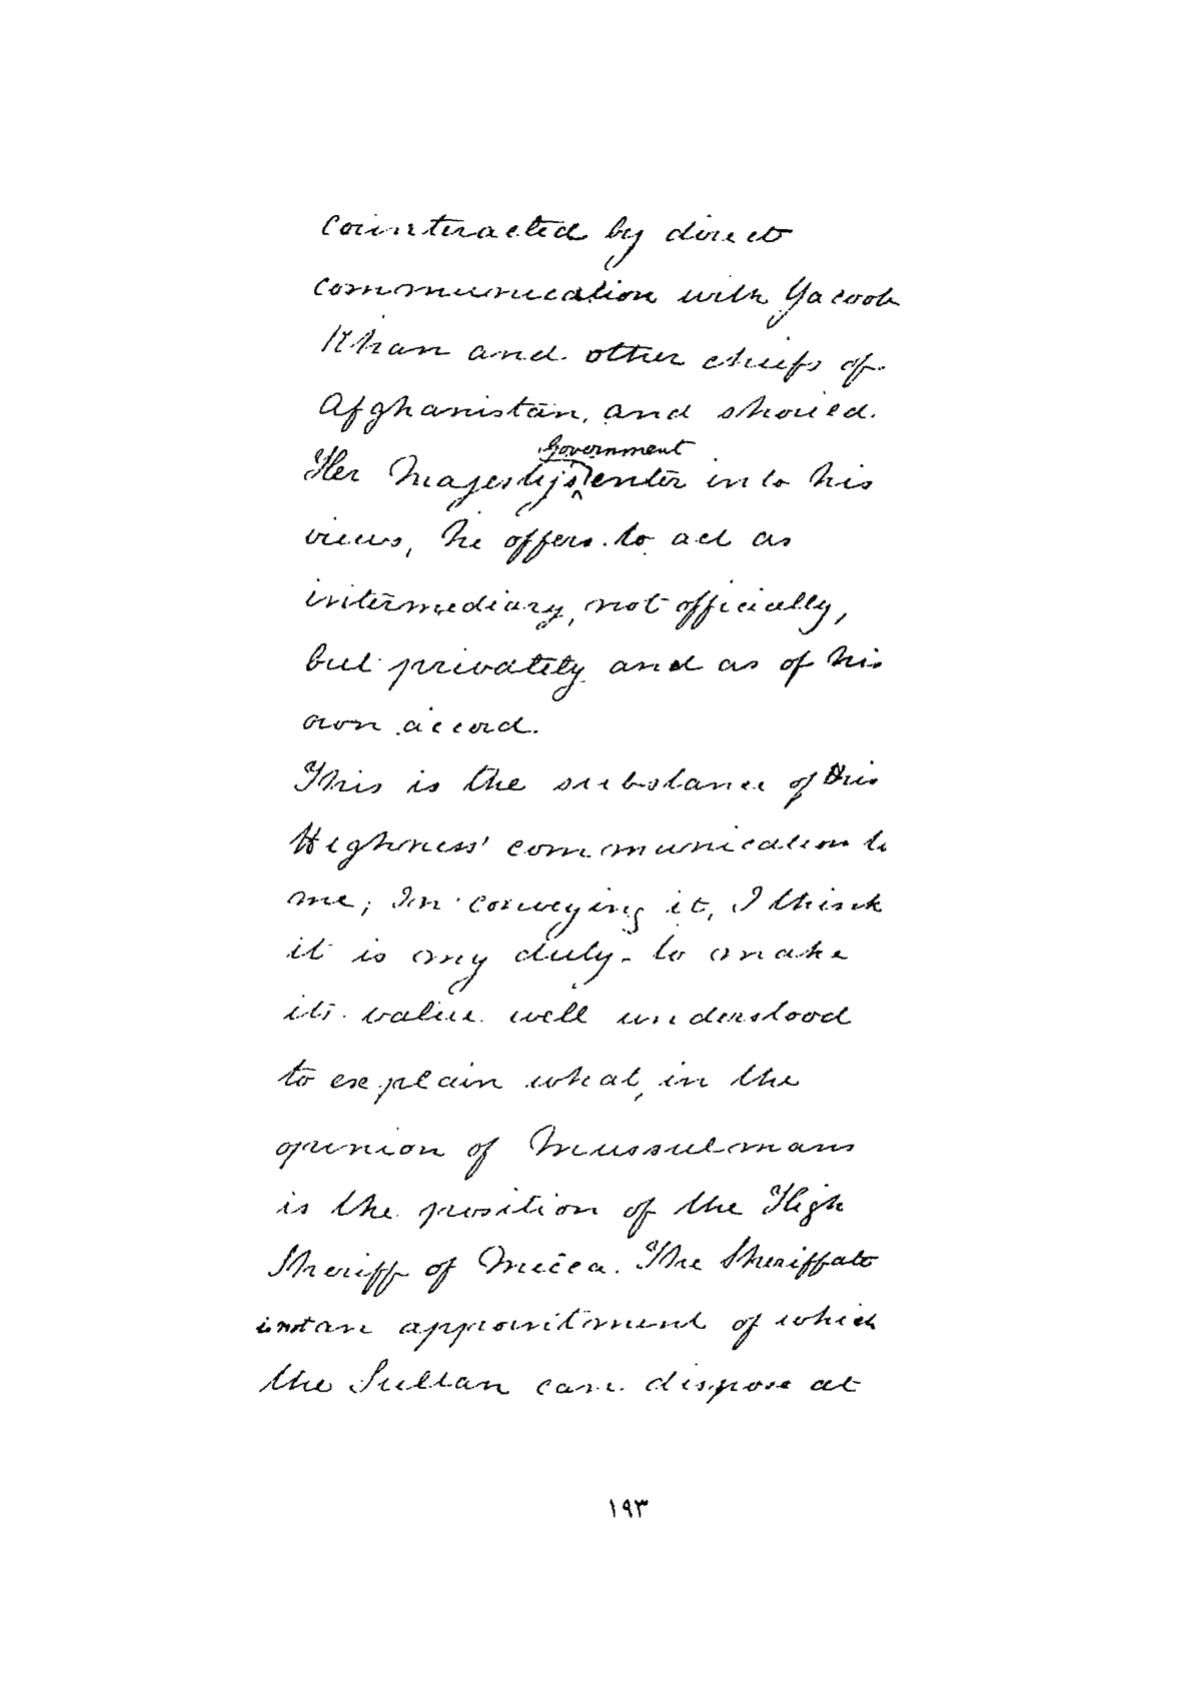 counteracted by direct
communication with Yacoob
Khan and other chiefs of
Afghanistan, and should
Government
Her Majesty's enter into his
views, he offers to act as
intermediary, not officially,
but privately and as of his
own accord.
This is the substance of this
Highness' communication to
me; In conveying it, I think
it is my duty to make
its value well understood
to explain what, in the
opinion of Mussulmans
is the position of the High
Sheriff of Mecca. The Sheriffate
is not an appointment of which
the Sultan can dispose at
١٩٣